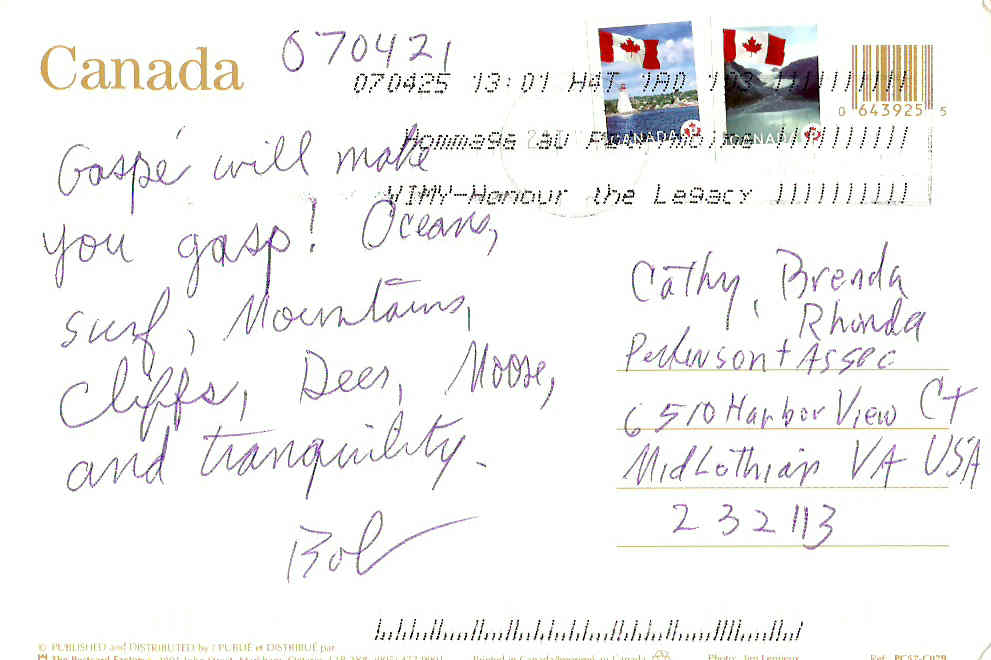 Canada
070421
070425 13:01 H4T 1A0 193
Hommage au
VIMY-Honour the Legacy
CANADA P
CANADA P
0 643925 5
Gaspé will make
you gasp! Oceans,
surf, Mountains,
Cliffs, Deer, Moose,
and tranquility.
Bob
Cathy, Brenda
Rhonda
Perkinson + Assoc
6510 Harbor View Ct
Midlothian VA USA
232113
© PUBLISHED and DISTRIBUTED by / PUBLIÉ et DISTRIBUÉ par
The Postcard Factory Markham, Ontario
Printed in Canada/Imprimé au Canada
Photo:
Ref: